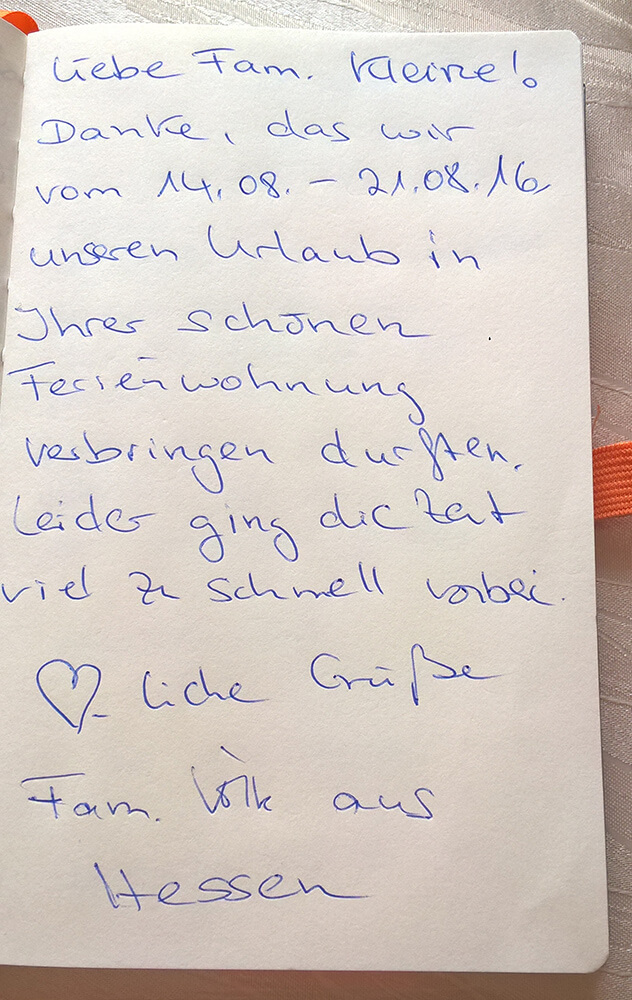 Liebe Fam. Kleine!
Danke, das wir
vom 14.08. – 21.08.16
unseren Urlaub in
Ihrer schönen
Ferienwohnung
verbringen durften.
Leider ging die Zeit
viel zu schnell vorbei.
♡-liche Grüße
Fam. Volk aus
Hessen